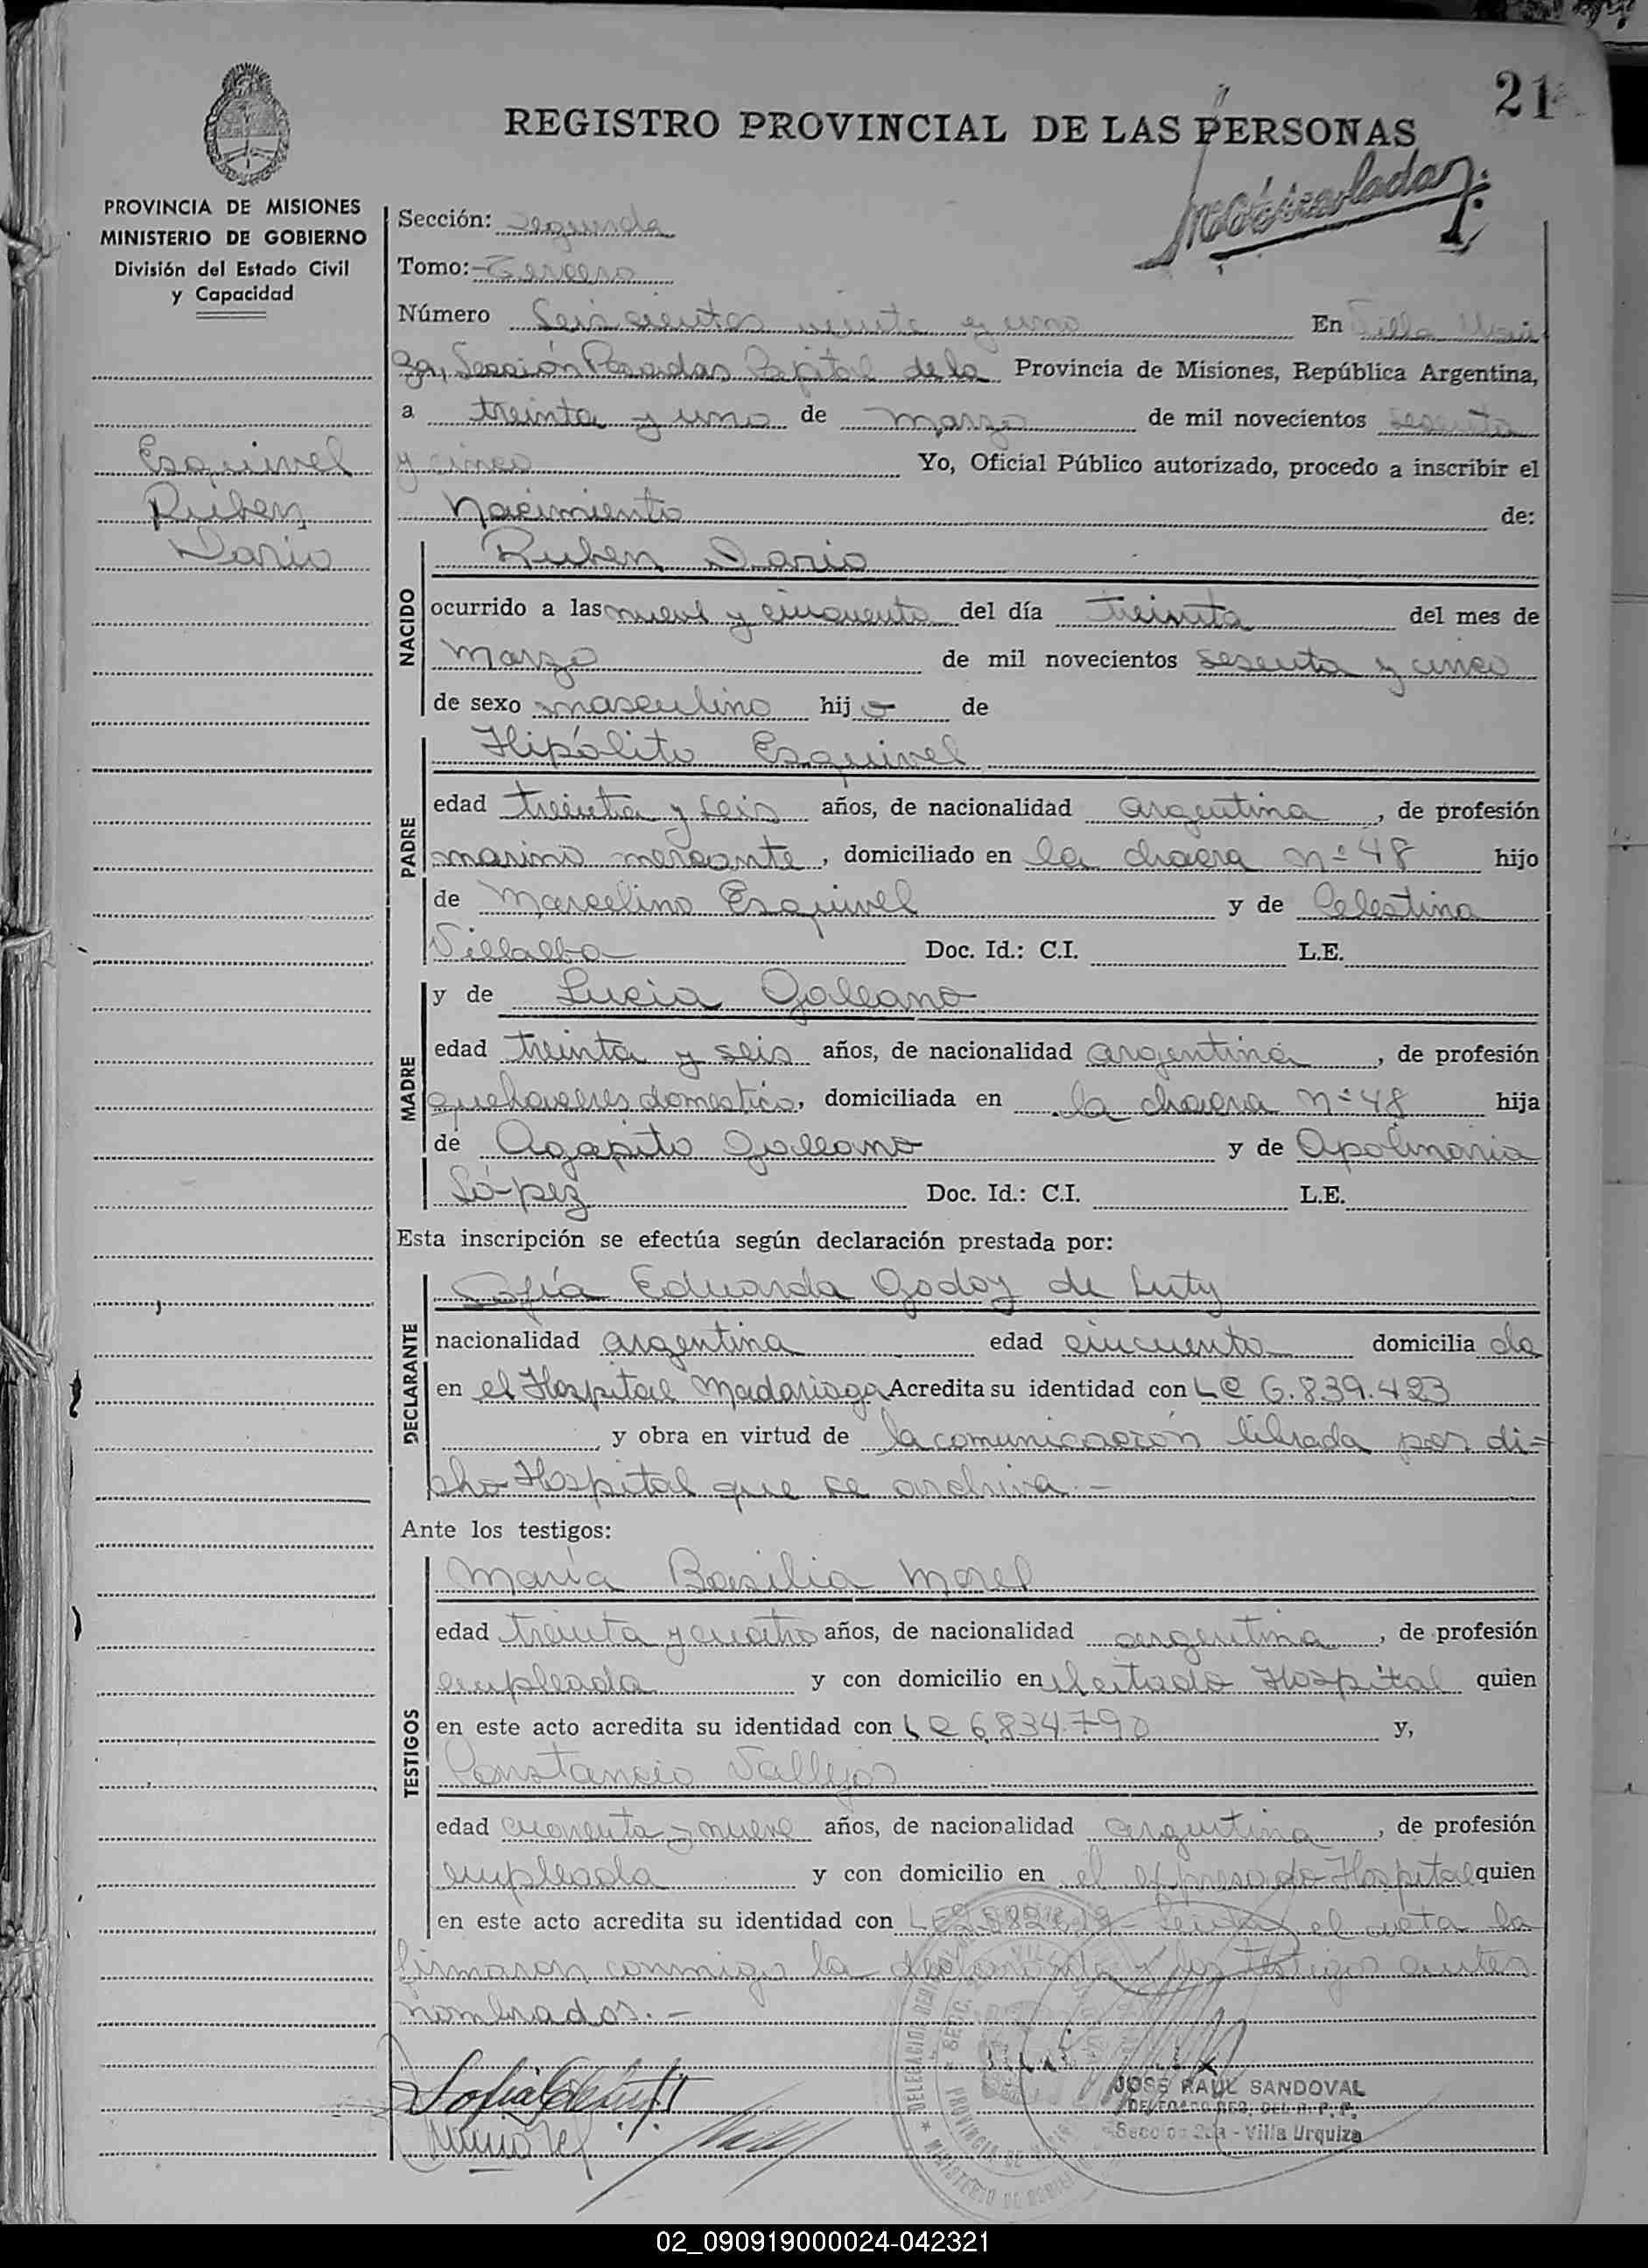 21
REGISTRO PROVINCIAL DE LAS PERSONAS
PROVINCIA DE MISIONES
MINISTERIO DE GOBIERNO
División del Estado Civil
y Capacidad
Esquivel
Ruben
Dario
Sección: Segunda
Tomo: Tercero
Número Seis cientos veinte y uno En Villa Urqui
za, Sección Posadas Capital de la Provincia de Misiones, República Argentina,
a treinta y uno de marzo de mil novecientos sesenta
y cinco Yo, Oficial Público autorizado, procedo a inscribir el
Nacimiento de:
NACIDO
Ruben Dario
ocurrido a las nueve y cincuenta del día treinta del mes de
Marzo de mil novecientos sesenta y cinco
de sexo masculino hijo de
PADRE
Hipólito Esquivel
edad treinta y seis años, de nacionalidad argentina, de profesión
marino mercante, domiciliado en la chacra nº 48 hijo
de Marcelino Esquivel y de Celestina
Villalba Doc. Id.: C.I. L.E.
MADRE
y de Lucia Galeano
edad treinta y seis años, de nacionalidad argentina, de profesión
quehaceres domestico, domiciliada en la chacra nº 48 hija
de Agapito Galleano y de Apolinaria
López Doc. Id.: C.I. L.E.
Esta inscripción se efectúa según declaración prestada por:
DECLARANTE
Sofía Eduarda Godoy de Luty
nacionalidad argentina edad cincuenta domiciliada
en el Hospital Madariaga Acredita su identidad con LC 6.839.423
y obra en virtud de la comunicación librada por di=
cho Hospital que se archiva.-
Ante los testigos:
TESTIGOS
María Basilia Morel
edad treinta y cuatro años, de nacionalidad argentina, de profesión
empleada y con domicilio en el citado Hospital quien
en este acto acredita su identidad con LC 6.834.790 y,
Constancio Vallejos
edad cuarenta y nueve años, de nacionalidad argentina, de profesión
empleada y con domicilio en el expresado Hospital quien
en este acto acredita su identidad con el acta la
firmaron conmigo la declarante y los testigos antes
nombrados.-
JOSE RAUL SANDOVAL
DELEGADO REG. DEL R. P. P.
Sección 2da - Villa Urquiza
02_090919000024-042321